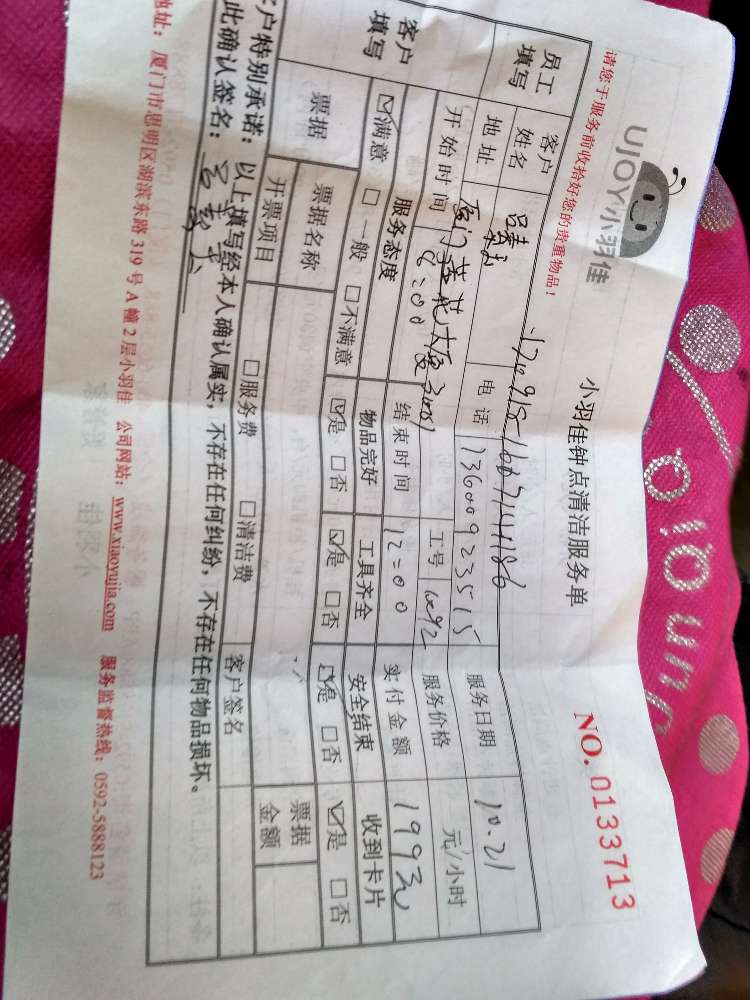 UJOY小羽佳
小羽佳钟点清洁服务单
NO. 0133713
请您于服务前收拾好您的贵重物品！
员工填写
客户姓名
电话 13600923515
服务日期 10.21
地址
工号
服务价格 元/小时
开始时间 8:00
结束时间 12:00
实付金额 199元
客户填写
服务态度 物品完好 工具齐全 安全结束 收到卡片
☑满意 □一般 □不满意 ☑是 □否 ☑是 □否 ☑是 □否 ☑是 □否
票据 票据名称 票据金额
开票项目 □服务费 □清洁费 客户签名
客户特别承诺：以上填写经本人确认属实，不存在任何纠纷，不存在任何物品损坏。
此确认签名：
地址：厦门市思明区湖滨东路 319 号 A 幢 2 层小羽佳 公司网站：www.xiaoyujia.com 服务监督热线：0592-5888123